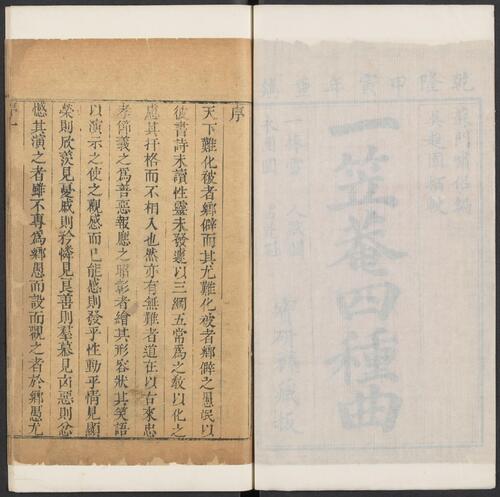 乾隆甲寅年重鐫
一笠菴四種曲
一捧雪 人獸關
永團圓 占花魁
藏板
序
天下難化被者鄉僻而其尤難化被者鄉僻之愚民以
彼書詩未讀性靈未發遽以三綱五常爲之敎以化之
應其扞格而不相入也然亦有無難者道在以古來忠
孝節義之爲善惡報應之昭彰者繪其形容狀其笑語
以演示之使之觀感而已能感則發乎性動乎情見顯
榮則欣羨見憂戚則矜憐見良善則羣慕見凶惡則忿
憾其演之者雖不專爲鄉愚而設而觀之者於鄉愚尤